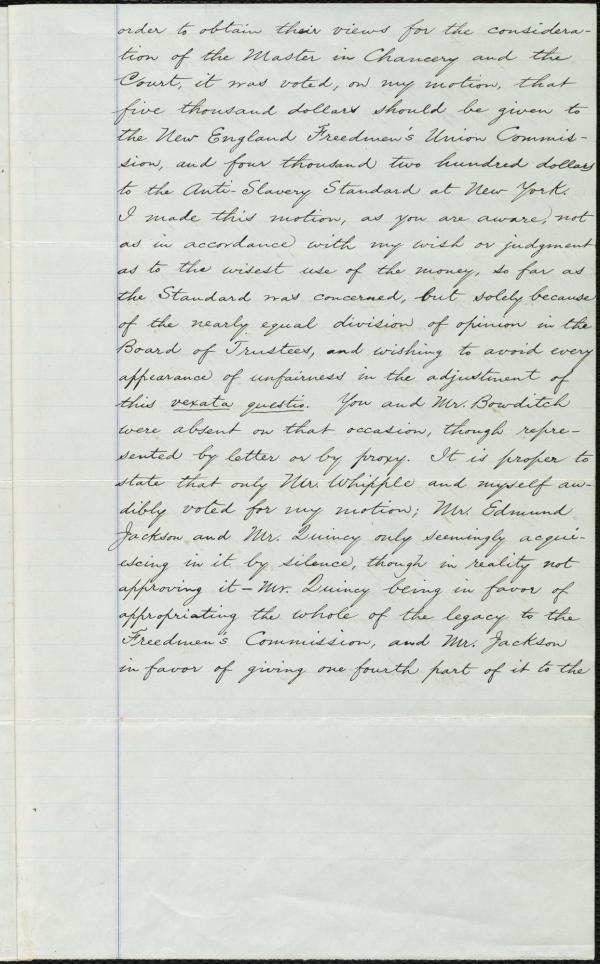 order to obtain their views for the considera-
tion of the Master in Chancery and the
Court, it was voted, on my motion, that
five thousand dollars should be given to
the New England Freedmen's Union Commis-
sion, and four thousand two hundred dollars
to the Anti-Slavery Standard at New York.
I made this motion, as you are aware, not
as in accordance with my wish or judgment
as to the wisest use of the money, so far as
the Standard was concerned, but solely because
of the nearly equal division of opinion in the
Board of Trustees, and wishing to avoid every
appearance of unfairness in the adjustment of
this vexata questio. You and Mr. Bowditch
were absent on that occasion, though repre-
sented by letter or by proxy. It is proper to
state that only Mr. Whipple and myself au-
dibly voted for my motion; Mr. Edmund
Jackson and Mr. Quincy only seemingly acqui-
escing in it by silence, though in reality not
approving it — Mr. Quincy being in favor of
appropriating the whole of the legacy to the
Freedmen's Commission, and Mr. Jackson
in favor of giving one fourth part of it to the